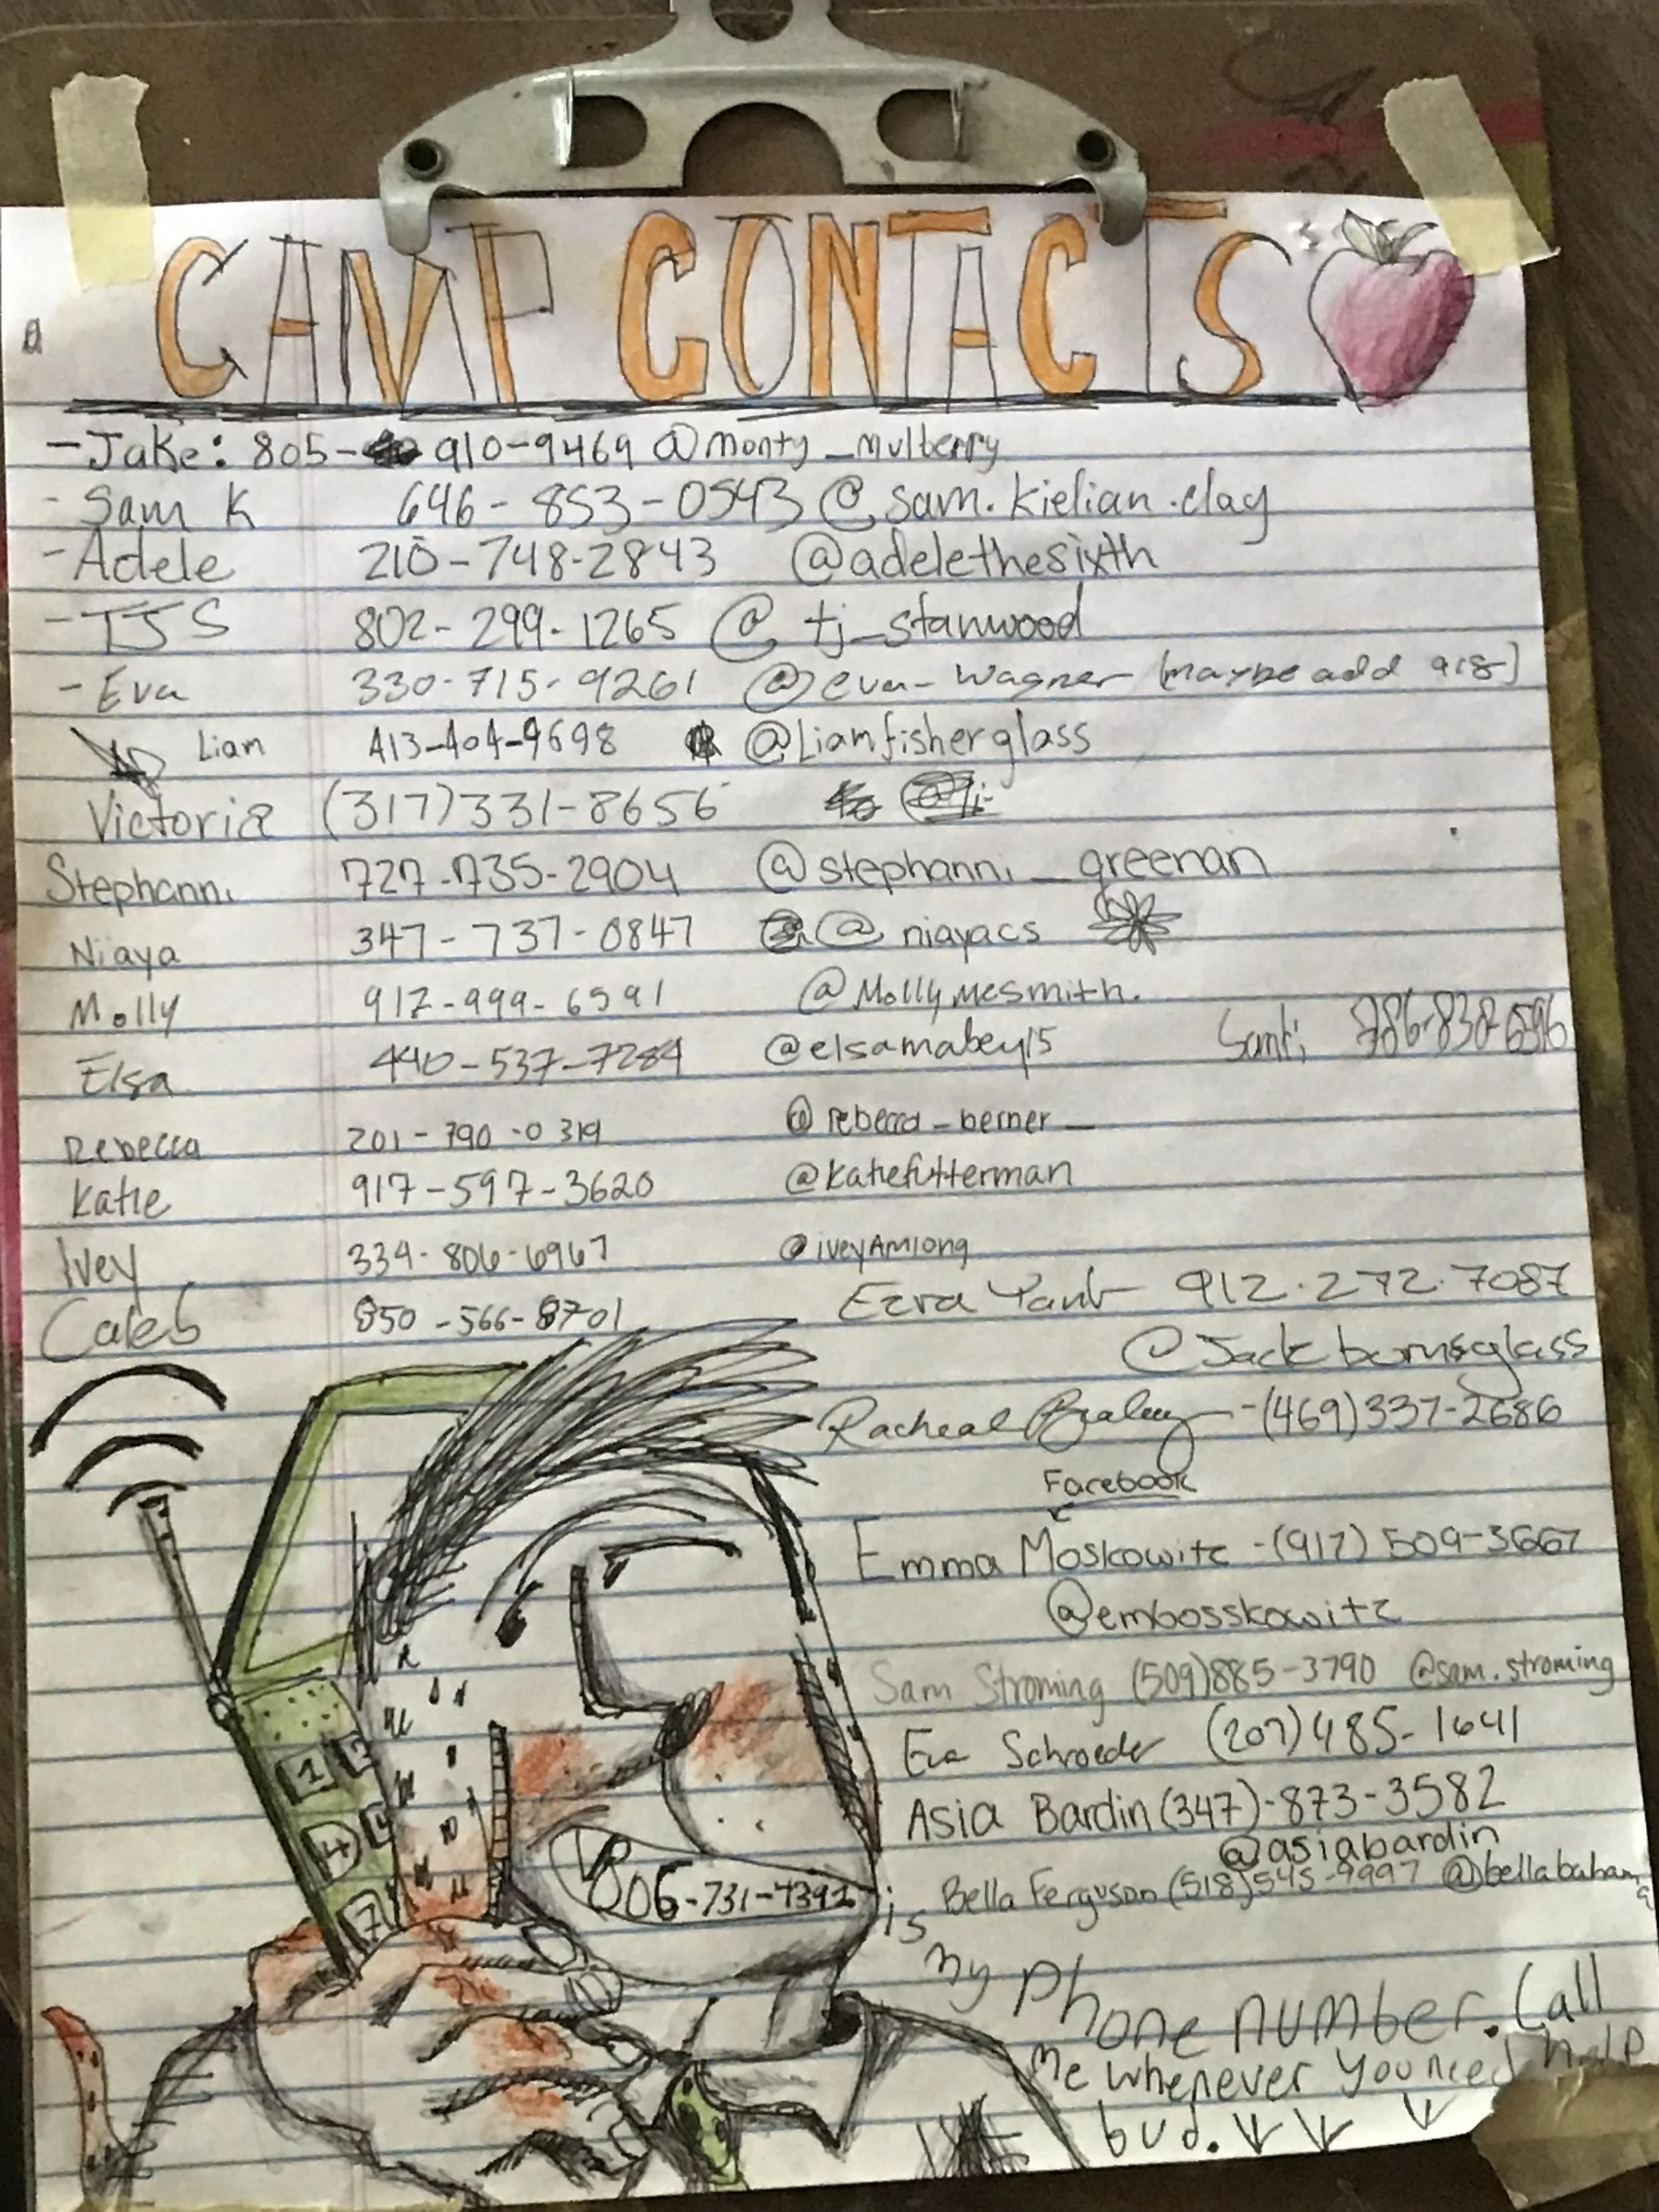 CAMP CONTACTS
- Jake: 805- 910-9469 @monty_mulberry
- Sam K 646-853-0543 @sam.kielian.clay
- Adele 210-748-2843 @adelethesixth
- TJS 802-299-1265 @tj_stanwood
- Eva 330-715-9261 @eva_wagner (maybe add 918)
Liam 413-404-9698 @Liamfisherglass
Victoria (317)331-8656
Stephanni 727-735-2904 @stephanni_greenan
Niaya 347-737-0847 @niayacs
Molly 912-999-6591 @Mollymcsmith.
Santi 786-838-6596
Elsa 440-537-7284 @elsamabey15
Rebecca 201-790-0319 @rebecca_berner_
Katie 917-597-3620 @katiefutterman
Ivey 334-806-6967 @iveyAmlong
Caleb 850-566-8701
Ezra 912.272.7087
@Jackburnsglass
Racheal (469)337-2686
Facebook
Emma Moskowitz -(917) 509-3667
@embosskowitz
Sam Stroming (509)885-3790 @sam.stroming
Eva Schroeder (207)485-1641
Asia Bardin (347)-873-3582
@asiabardin
Bella Ferguson (518)545-9997 @bellabahama
1 2
4
7
806-731-4392 is
my phone number. Call
me whenever you need help
bud.